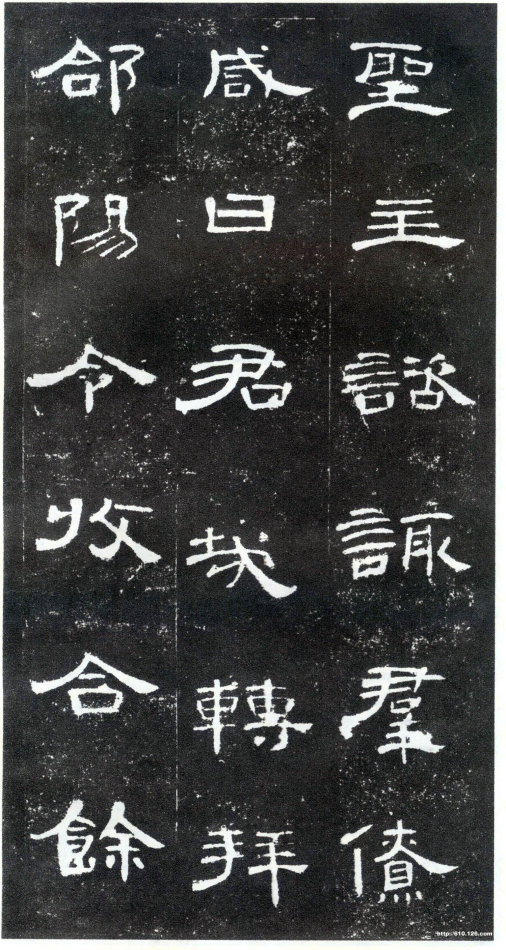 聖主諮諏群僚
咸曰君哉轉拜
郃陽令收合餘
http://610.126.com